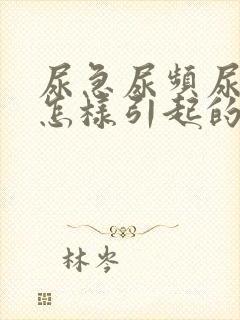 尿急尿频尿
怎样引起的
林岑